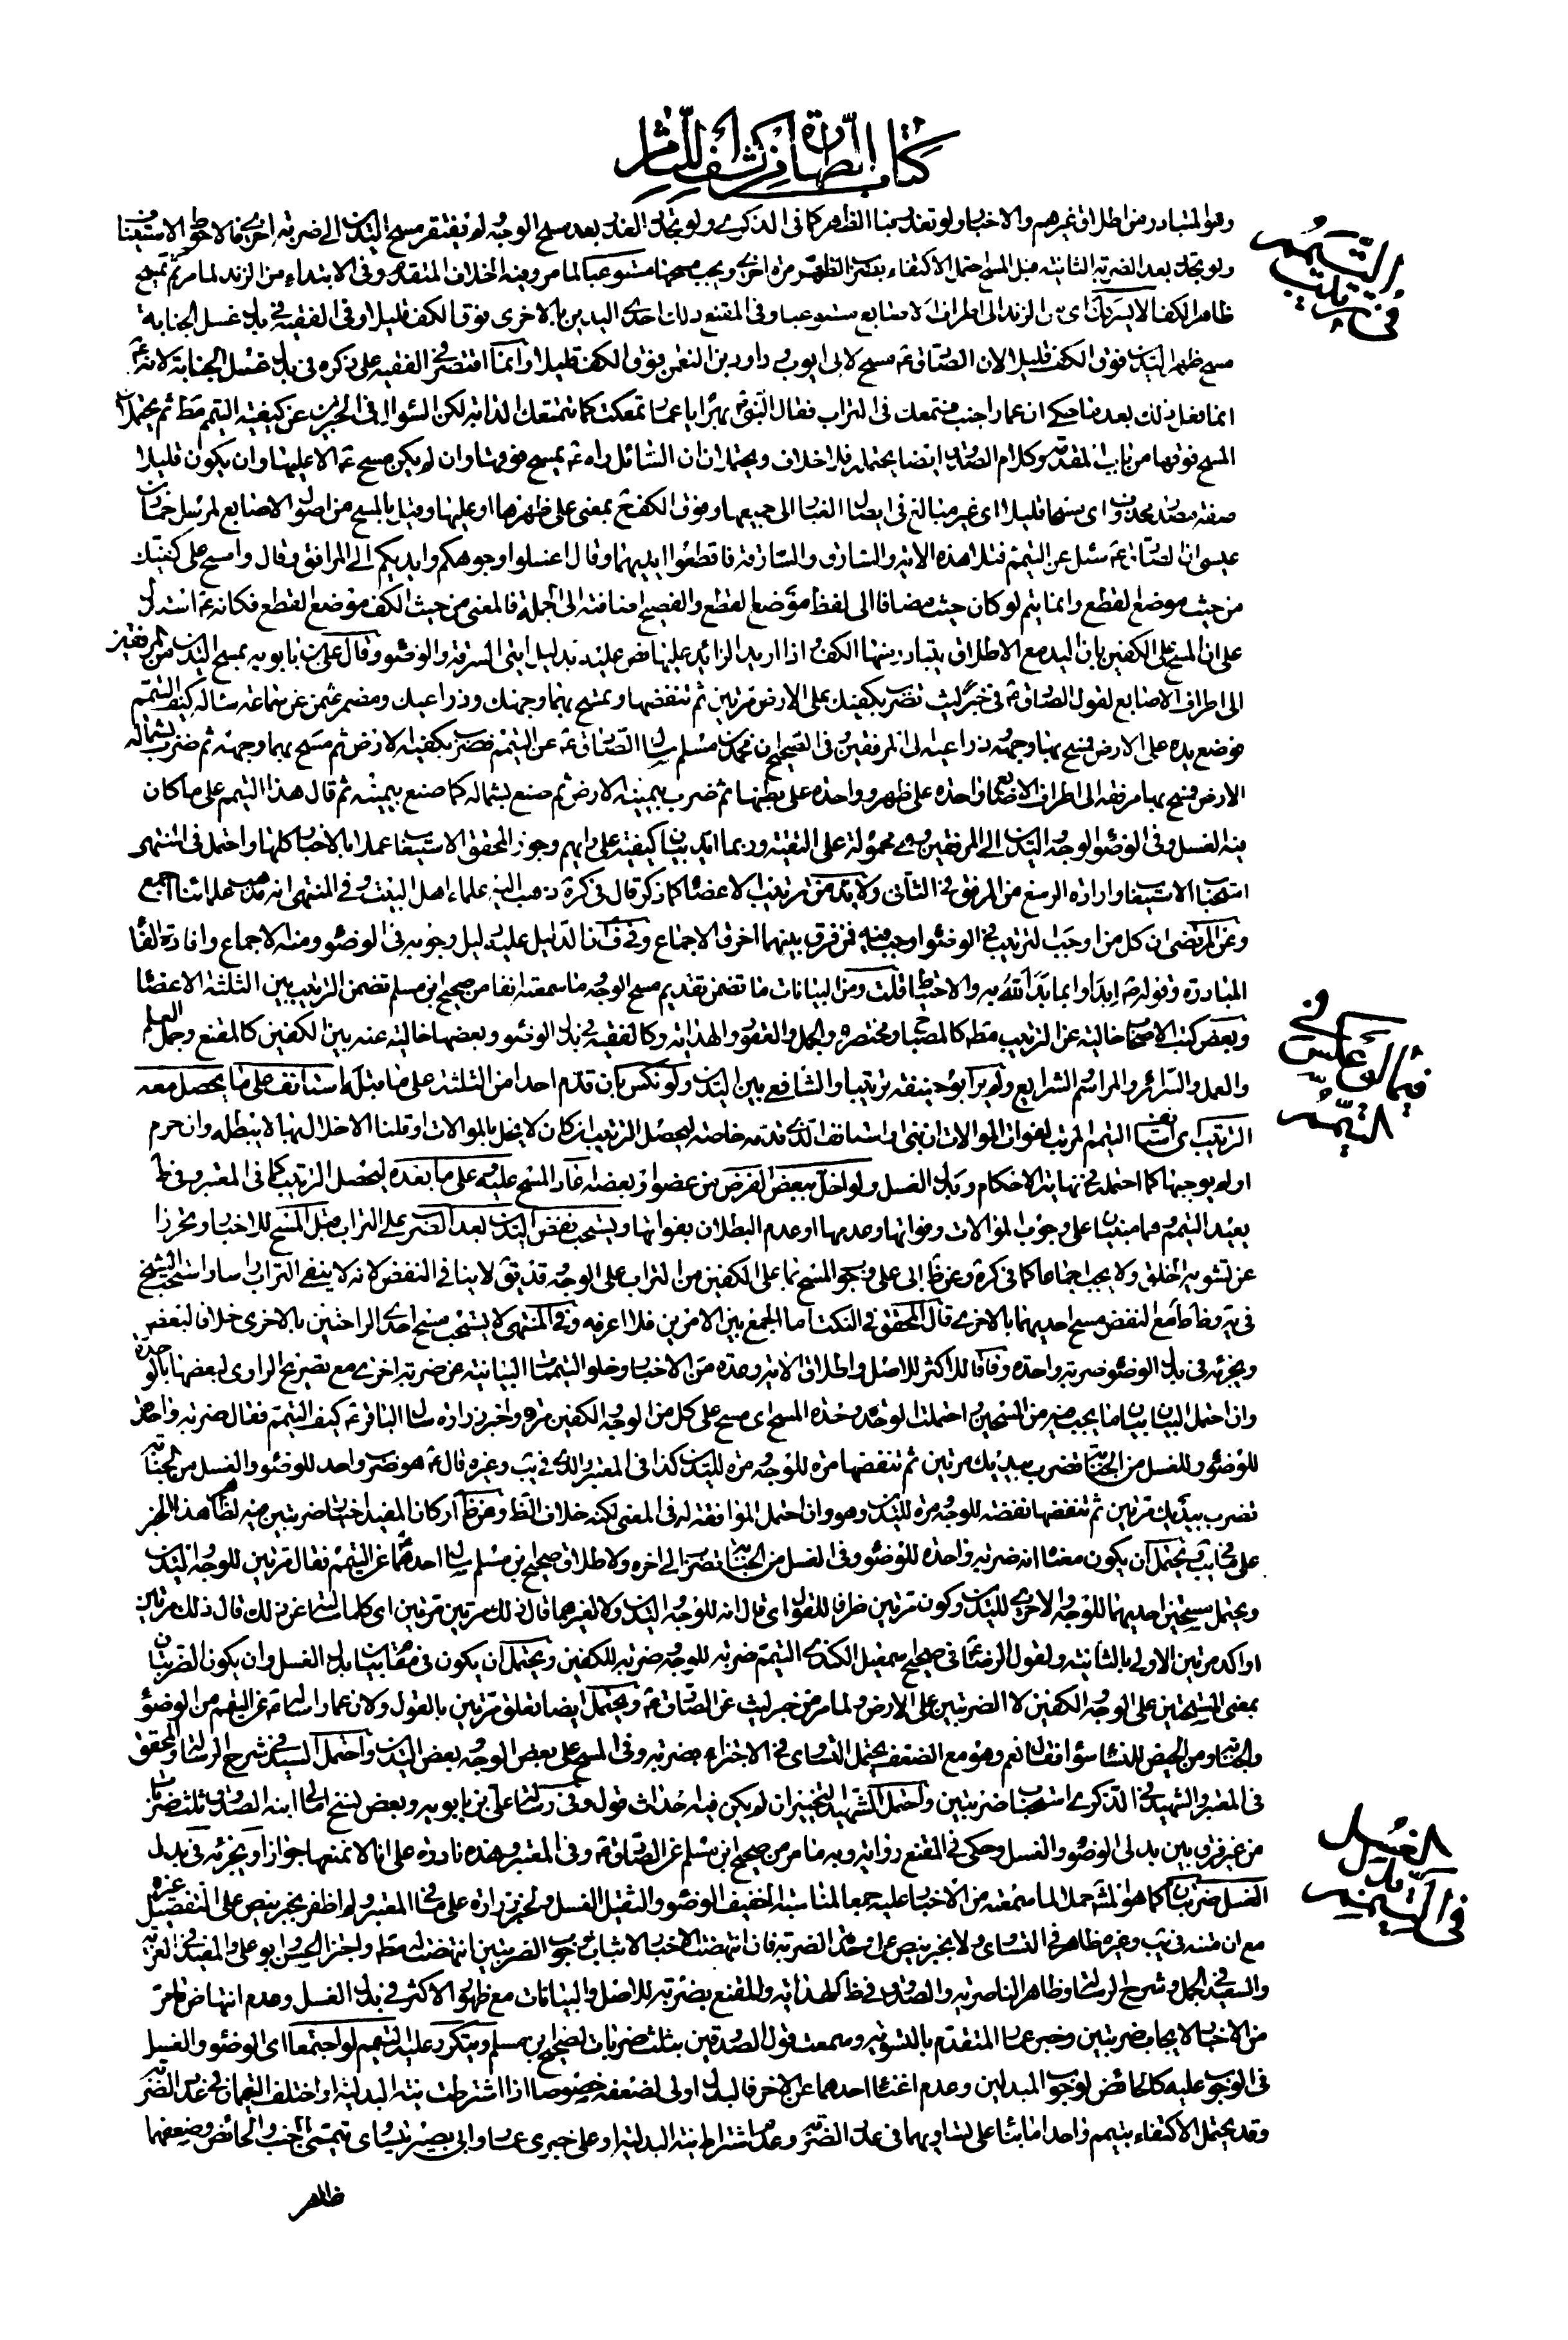 كتاب الطهارة من كشف اللثام
في ترتيب التيمم
وهو المتبادر من اطلاق غيرهم والاخبار ولو تعذر ضربنا الظهر كما في الذكرى ولو تجدد العذر بعد مسح الوجه لم يفتقر مسح اليدين الى ضربة اخرى فالاحوط الاستيناف
ولو تجدد بعد الضربة الثانية قبل المسح احتمل الاكتفاء بضرب الظهر مرة اخرى ويجب مسحهما مستوعبا لما مر وفيه الخلاف المتقدم وفي الابتداء من الزند لما مر ثم تمسح
ظاهر الكف الايسر كك اى من الزند الى اطراف الاصابع مستوعبا وفي المقنع دلك احدى اليدين بالاخرى فوق الكف قليلا وفي الفقيه في بدل غسل الجنابة
مسح ظهر اليدين فوق الكف قليلا لان الصادق ع مسح لابى ايوب وداود بن النعمن فوق الكف قليلا وانما اقتصر في الفقيه على ذكره في بدل غسل الجنابة لانه ع
انما فعل ذلك بعد ما حكى ان عمارا اجنب فتمعك في التراب فقال النبي ص يهزأ يا عمار تمعكت كما تتمعك الدابة لكن السؤال في الخبرين عن كيفية التيمم مط ثم يحتملان
المسح فوقها من باب المقدمة وكلام الصدوق ايضا يحتمله فلا خلاف ويحتملان ان السائل راه ع يمسح فوقها وان لم يكن مسح ع الا عليها وان يكون قليلا
صفة مصدر محذوف اى مسحا قليلا اى غير مبالغ في ايصال الغبار الى جميعها وفوق الكف ح بمعنى على ظهرها او عليها وقيل بالمسح من اصول الاصابع لمرسل حماد بن
عيسى ان الصادق ع سئل عن التيمم فتلا هذه الاية والسارق والسارقة فاقطعوا ايديهما وقال اغسلوا وجوهكم وايديكم الى المرافق وقال وامسح على كفيك
من حيث موضع القطع وانما يتم لو كان حيث مضافا الى لفظ موضع القطع والفصيح اضافته الى الجملة فالمعنى من حيث الكف موضع القطع فكانه ع استدل
على ان المسح على الكفين بان اليد مع الاطلاق يتبادر منها الكف اذا اريد الزائد عليها نص عليه بدليل ايتى السرقة والوضوء وقال على بن بابويه يمسح اليدين من المرفقين
الى اطراف الاصابع لقول الصادق ع في خبر ليث تضرب بكفيك على الارض مرتين ثم تنفضها وتمسح بهما وجهك وذراعيك ومضمر عثمن عن سماعة سئاله كيف التيمم
فوضع يده على الارض فمسح بها وجهه وذراعيه الى المرفقين وفي الصحيح ان محمد بن مسلم سال الصادق ع عن التيمم فضرب بكفيه الارض ثم مسح بهما وجهه ثم ضرب بشماله
الارض فمسح بها مرفقه الى اطراف الاصابع واحدة على ظهرها وواحدة على بطنها ثم ضرب بيمينه الارض ثم صنع بشماله كما صنع بيمينه ثم قال هذا التيمم على ما كان
فيه الغسل وفي الوضوء الوجه واليدين الى المرفقين وهى محمولة على التقية وربما اريد بيان كيفيته على رايهم وجوز المحقق الاستيعاب عملا بالاخبار كلها واحتمل في المنتهى
استحباب الاستيعاب وارادة الرسغ من المرفق في الثاني ولابد من ترتيب الاعضاء كما ذكر قال في كرة ذهب اليه علماء اهل البيت ع وفي المنتهى انه مذهب علمائنا اجمع
وعن المرتضى ان كل من اوجب الترتيب في الوضوء اوجبه فيه فمن فرق بينهما اخرق الاجماع وفي ف ان الدليل عليه دليل وجوبه في الوضوء ومنه الاجماع وافادة الفاء
المبادرة وقوله ص ابدأوا بما بدأ الله به والاحتياط قلت ومن البيانات ما تضمن تقديم مسح الوجه ما سمعته انفا من صحيح ابن مسلم تضمن الترتيب بين الثلثة الاعضاء
وبعض كتب الاصحاب خالية عن الترتيب مط كالمصباح ومختصره والجمل والعقود والهداية وكالفقيه في بدل الوضوء وبعضها خالية عنه بين الكفين كالمقنع وجمل العلم
والعمل والسرائر والمراسم والشرايع ولم ير ابو حنيفة ترتيبا والشافعى بين اليدين ولو نكس بان قدم احدا من الثلثة على ما قبله استانف على ما يحصل معه
فيما لو عكس في التيمم
الترتيب اى استانف التيمم المرتب لفوات الموالاة ان بنى واستانف الذى قدمه خاصة ليحصل الترتيب ان كان لا يخل بالموالاة او قلنا الاخلال بها لا يبطله وان حرم
او لم يوجبها كما احتمله في نهاية الاحكام وبدل الغسل ولو اخل ببعض الفرض من عضو او بعضه عاد المسح عليه وعلى ما بعده ليحصل الترتيب كما في المعتبر وفي ط
يعيد التيمم وهما مبنيان على وجوب الموالاة وفواتها وعدمها او عدم البطلان بفواتها ويستحب نفض اليدين بعد الضرب على التراب قبل المسح للاخبار وتحرزا
عن تشويه الخلق ولا يجب اجماعا كما في كرة وعن ظ ابى على وجوب المسح بما على الكفين من التراب على الوجه قد يق لا ينافي النفض لانه لا ينفي التراب راسا واستحب الشيخ
في ية وط مع النفض مسح احديهما بالاخرى قال المحقق في النكت اما الجمع بين الامرين فلا اعرفه وفي المنتهى لا يستحب مسح احدى الراحتين بالاخرى خلافا لبعضهم
ويجزئه في بدل الوضوء ضربة واحدة وفاقا للاكثر للاصل واطلاق الاية وعدة من الاخبار وخلو التيممات البيانية عن ضربة اخرى مع تصريح الراوى لبعضها بالوحدة
وان احتمل البيان بيان ما يجب فيه من المسحين واحتملت الوحدة وحدة المسح اى مسح على كل من الوجه والكفين مرة وخبر زرارة سال الباقر ع كيف التيمم فقال ضربة واحدة
للوضوء وللغسل من الجنابة تضرب بيديك مرتين ثم تنفضها مرة للوجه ومرة لليدين كذا في المعتبر والذى في يب وغيره قال ع هو ضرب واحد للوضوء والغسل من الجنابة
تضرب بيديك مرتين ثم تنفضها نفضة للوجه ومرة لليدين وهو وان احتمل الموافقة له في المعنى لكنه خلاف الظ وعن ظ اركان المفيد اختيار ضربتين فيه لظاهر هذا الخبر
على ما في يب ويحتمل ان يكون معناه انه ضربة واحدة للوضوء وفي الغسل من الجنابة تضرب الى اخره ولاطلاق صحيح ابن مسلم سال احدهما ع عن التيمم فقال مرتين للوجه واليدين
ويحتمل مسحتين احديهما للوجه والاخرى لليدين وكون مرتين ظرفا للقول اى قال انه للوجه واليدين ولا لغيرهما قال ذلك مرتين مرتين اى كلما سالنا عن ذلك قال ذلك مرتين
او اكد مرتين الاولى بالثانية ولقول الرضا ع في صحيح اسمعيل الكندى التيمم ضربة للوجه وضربة للكفين ويحتمل ان يكون في مقام بيان بدل الغسل وان يكون الضربتان
بمعنى المسحتين على الوجه والكفين لا الضربتين على الارض ولما مر من خبر ليث عن الصادق ع ويحتمل ايضا تعلق مرتين بالقول ولان عمارا ساله ع عن التيمم من الوضوء
والجنابة ومن الحيض للنساء سواء فقال نعم وهو مع الضعف يحتمل التساوى في الاجتزاء بضربة وفي المسح على بعض الوجه وبعض اليدين واحتمل السيد في شرح الرسالة والمحقق
في المعتبر والشهيد في الذكرى استحباب ضربتين واحتمل الشهيد التخيير ان لم يكن فيه احداث قول وفي رسالة على بن بابويه وبعض نسخ امالى ابنه الصدوق ثلث ضربات
من غير فرق بين بدلى الوضوء والغسل وحكى في المقنع رواية وبه ما مر من صحيح ابن مسلم عن الصادق ع وفي المعتبر وهذه نادرة على انا لا نمنعها جوازا ويجزئه في بدل
في التيمم بدل الغسل
الغسل ضربتان كما هو المشهور حملا لما سمعته من الاخبار عليه جمعا لمناسبة الخفيف الوضوء والثقيل الغسل ولخبر زرارة على ما في المعتبر ولم اظفر بخبر ينص على التفصيل غيره
مع ان متنه في يب وغيره ظاهر في التساوى ولا بخبر ينص على وحدة الضربة فان انتهضت الاخبار لاثبات وجوب الضربتين انتهضت له مط واجتزا الحسن وابو على والمفيد في الغرية
والسيد في الجمل وشرح الرسالة وظاهر الناصرية والصدوق في ظ الهداية والمقنع بضربة للاصل والبيانات مع ظهور الاكثر في بدل الغسل وعدم انتهاض ما مر
من الاخبار لايجاب ضربتين وخبر عمار المتقدم بالتسوية وسمعت قول الصدوقين بثلث ضربات لصحيح ابن مسلم ويتكرر عليه التيمم لو اجتمعا اى الوضوء والغسل
في الوجوب عليه كالحائض لوجوب المبدلين وعدم اغناء احدهما عن الاخر فالبدل اولى لضعفه خصوصا اذا اشترطت نية البدلية او اختلف التيممان في عدد الضرب
وقد يحتمل الاكتفاء بتيمم واحد اما بناء على تساويهما في عدد الضربة وعدم اشتراط نية البدلية او على خبرى عمار وابى بصير بتساوى تيممى الجنب والحائض وضعفهما
ظاهر